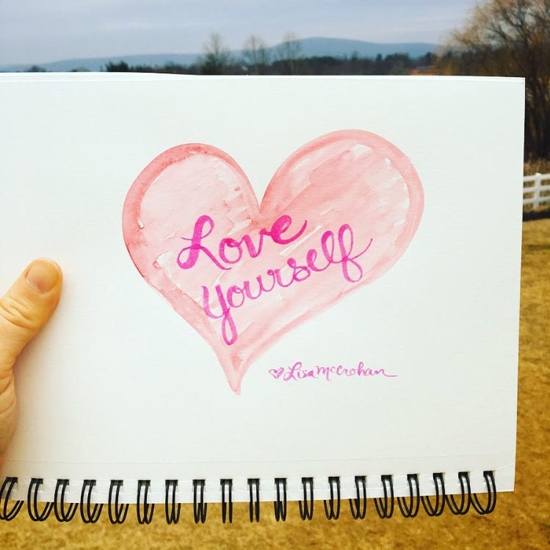 Love
yourself
♡Lisa McCrohan